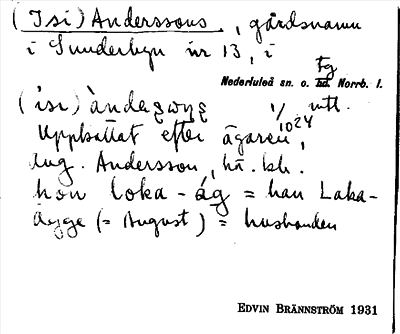 (Isi) Anderssons, gårdsnamn
i Sunderbyn nr 13, i
Fg
Nederluleå sn. o. hd. Norrb. l.
(ísi) ànda 1/ utt.
1024
Uppkallat efter ägaren,
Aug. Andersson, hä. kh.
hon loka-ág = han Laka-
ágge (= August) = husbonden
EDVIN BRÄNNSTRÖM 1931